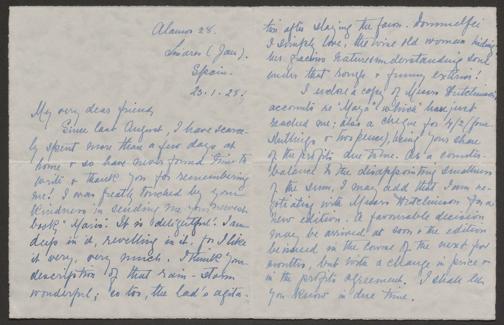 Alamos 28.
Linares (Jaen).
Spain.
23.1.28.
My very dear friend,
Since last August, I have scarce-
ly spent more than a few days at
home & so have never found time to
write & thank you for remembering
me! I was greatly touched by your
kindness in sending me your newest
book "Marin". It is delightful! I am
deep in it, revelling in it. for I like
it very, very much. I think your
description of that rain-storm
wonderful; so too, the lad's agita-
tion after slaying the fawn.
I simply love, the wise old woman hiding
her gracious nature & understanding soul
under that rough & funny exterior!
I enclose a copy of Messrs Hutchinson's
accounts re "Maya" which has just
reached me; also a cheque for 4/2/ (four
shillings & two pence), being your share
of the profits due to me. As a counter-
balance to the disappointing smallness
of the sum, I may add that I am ne-
gotiating with Messrs Hutchinson for a
new edition. A favourable decision
may be arrived at soon & the edition
be issued in the course of the next few
months, but with a change in price &
in the profits agreement. I shall let
you know in due time.